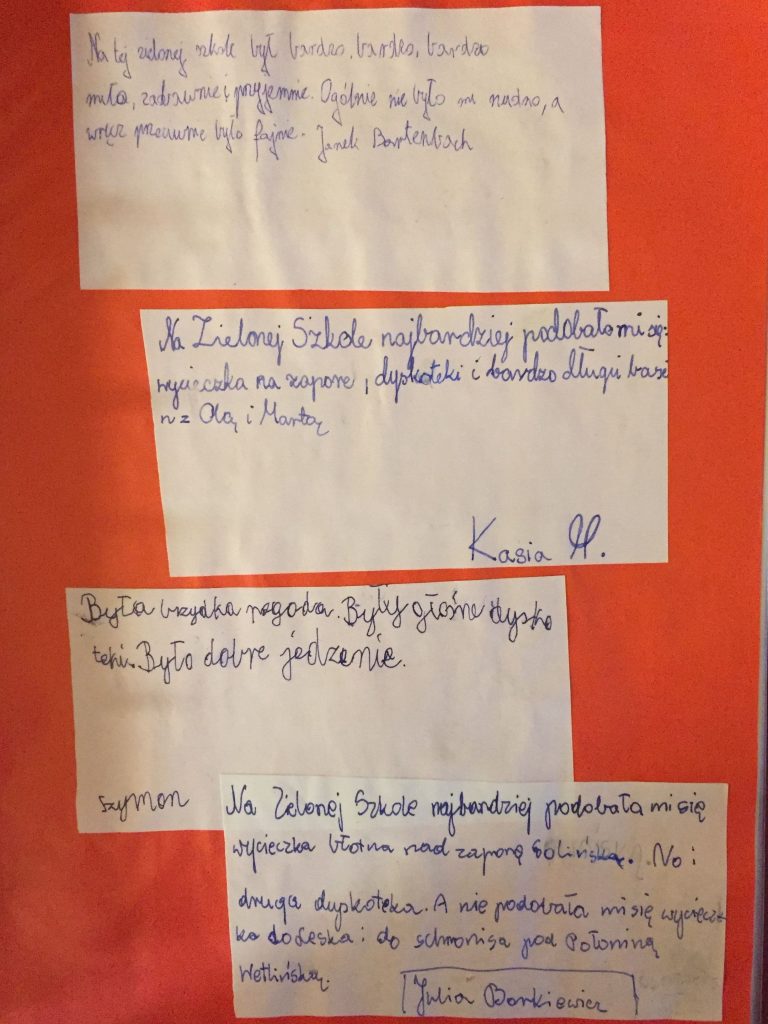 Na tej zielonej szkole był bardzo, bardzo, bardzo
miło, zabawnie i przyjemnie. Ogólnie nie było mi nudno, a
wręcz przeciwnie było fajnie. Janek Bartenbach
Na Zielonej Szkole najbardziej podobało mi się:
wycieczka na zapore, dyskoteki i bardzo długi base
n z Olą i Martą
Kasia M.
Była brzydka pogoda. Były głośne dysko
teki. Było dobre jedzenie.
Szymon
Na Zielonej Szkole najbardziej podobała mi się
wycieczka błotna nad zaporę Solińską. No i
druga dyskoteka. A nie podobała mi się wycieczk
ka do Leska i do schronisa pod Połoniną
Wetlińską.
Julia Borkiewicz